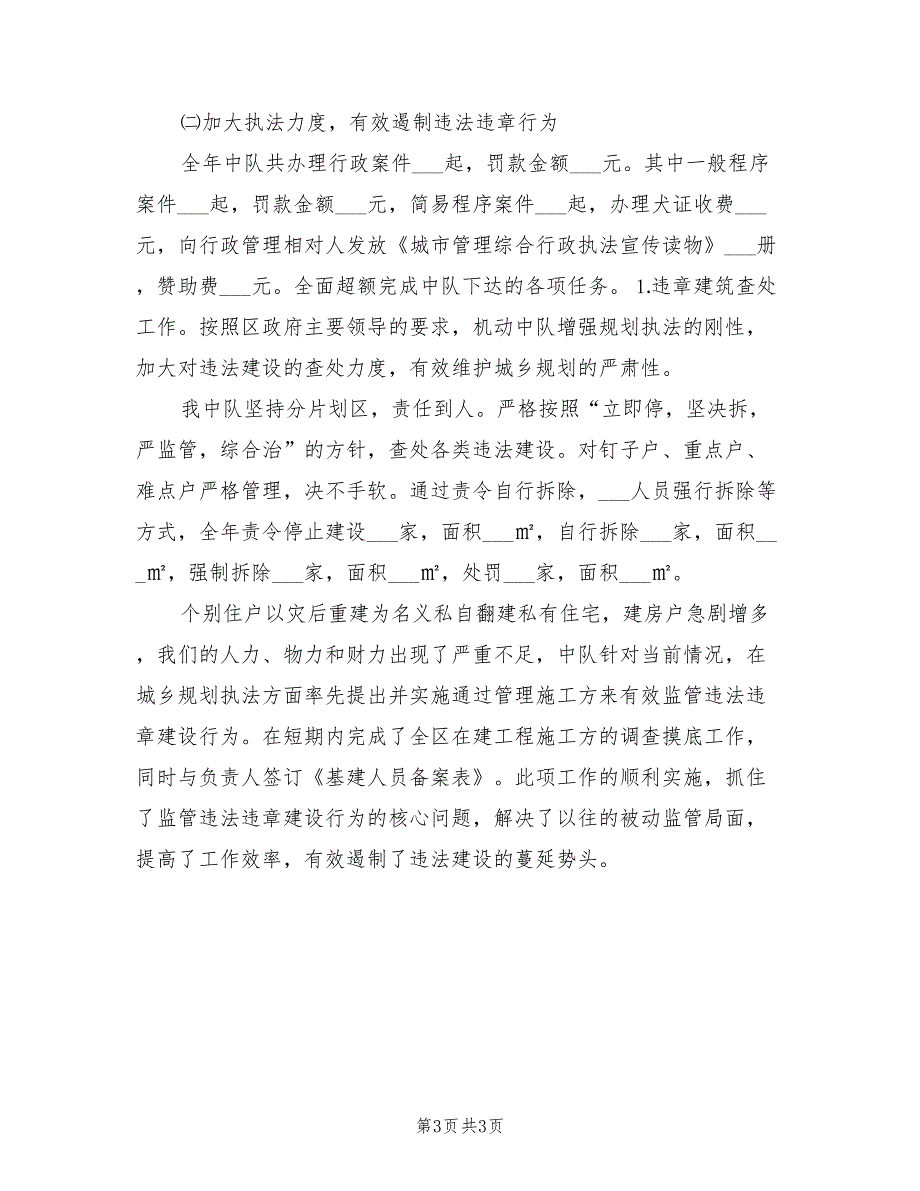 ㈡加大执法力度，有效遏制违法违章行为
全年中队共办理行政案件___起，罚款金额___元。其中一般程序
案件___起，罚款金额___元，简易程序案件___起，办理犬证收费___
元，向行政管理相对人发放《城市管理综合行政执法宣传读物》___册
，赞助费___元。全面超额完成中队下达的各项任务。 1.违章建筑查处
工作。按照区政府主要领导的要求，机动中队增强规划执法的刚性，
加大对违法建设的查处力度，有效维护城乡规划的严肃性。
我中队坚持分片划区，责任到人。严格按照“立即停，坚决拆，
严监管，综合治”的方针，查处各类违法建设。对钉子户、重点户、
难点户严格管理，决不手软。通过责令自行拆除，___人员强行拆除等
方式，全年责令停止建设___家，面积___㎡，自行拆除___家，面积__
_㎡，强制拆除___家，面积___㎡，处罚___家，面积___㎡。
个别住户以灾后重建为名义私自翻建私有住宅，建房户急剧增多
，我们的人力、物力和财力出现了严重不足，中队针对当前情况，在
城乡规划执法方面率先提出并实施通过管理施工方来有效监管违法违
章建设行为。在短期内完成了全区在建工程施工方的调查摸底工作，
同时与负责人签订《基建人员备案表》。此项工作的顺利实施，抓住
了监管违法违章建设行为的核心问题，解决了以往的被动监管局面，
提高了工作效率，有效遏制了违法建设的蔓延势头。
第3页 共3页